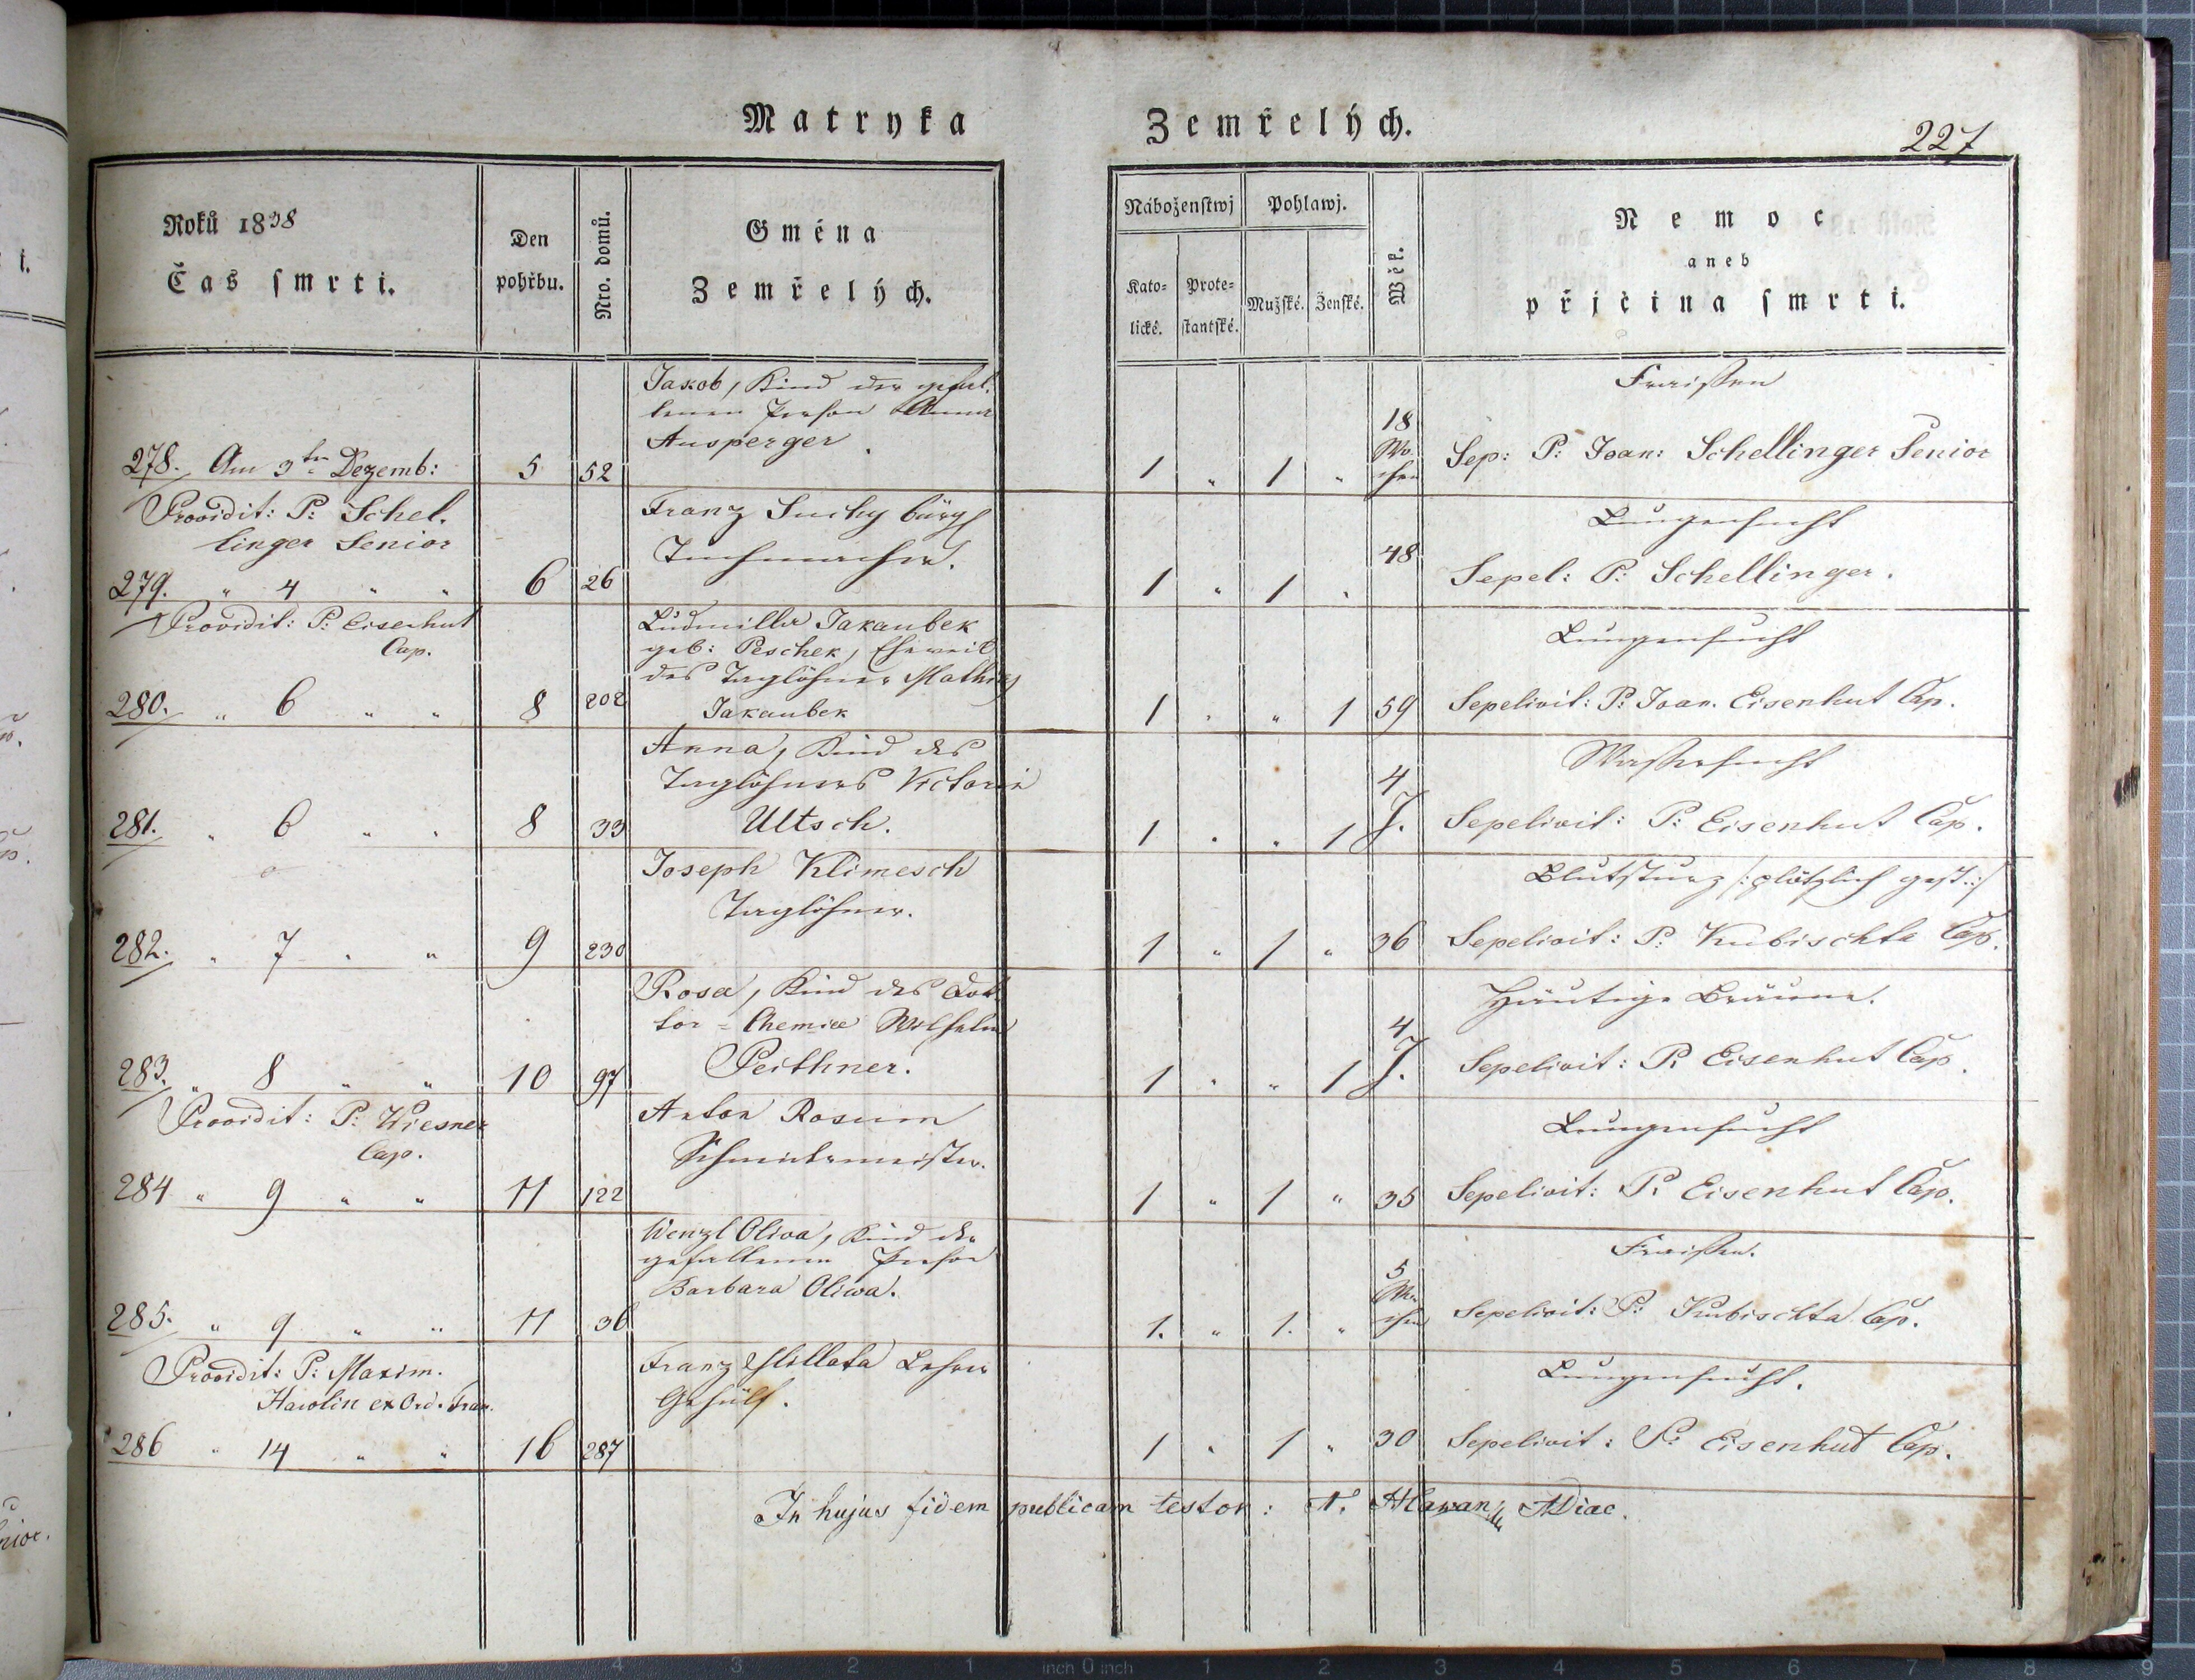 Matryka Zemřelých.
227
Roků 1838
Čas smrti.
Den pohřbu.
Nro. domů.
Gména Zemřelých.
Náboženstwj
Pohlawj.
Katolické.
Protestantské.
Mužské.
Ženské.
Wěk.
Nemoc
aneb
přjčina smrti.
Jakob, Kind der gefal.
lenen Person Anna
Ausperger
Fraißen
278. Am 3ten Dezemb: 5 52 1 " 1 " 18 Wochen Sep: P: Joan: Schellinger Senior
Providit: P: Schel.
linger Senior
Franz Suchy bürgl
Tuchmacher.
Lungensucht
279. " 4 " " 6 26 1 " 1 " 48 Sepel: P: Schellinger.
Providit: P: Eisenhut
Cap.
Ludmilla Jakaubek
geb: Peschek, Eheweib
des Taglöhner Mathias
Jakaubek
Lungensucht
280. " 6 " " 8 202 1 " " 1 59 Sepelivit: P: Joan. Eisenhut Cap.
Anna, Kind des
Taglöhners Victorin
Ultsch.
Wassersucht
281. " 6 " " 8 33 1 " " 1 4 J. Sepelivit: P: Eisenhut Cap.
Joseph Klimesch
Taglöhner.
Blutsturz /: plötzlich gest: :/
282. " 7 " " 9 230 1 " 1 " 36 Sepelivit: P: Kubischta Cap.
Rosa, Kind des Dok
tor = Chemiae Wilhelm
Peithner.
Häutige Bräune.
283. " 8 " " 10 97 1 " " 1 4 J. Sepelivit: P: Eisenhut Cap.
Providit: P: Wiesner
Cap.
Anton Rosum
Schmidtmeister.
Lungensucht
284 " 9 " " 11 122 1 " 1 " 35 Sepelivit: P: Eisenhut Cap.
Wenzl Oliva, Kind der
gefallenen Person
Barbara Oliwa.
Fraißen.
285. " 9 " " 11 36 1. " 1. " 5 Wochen Sepelivit: P: Kubischta Cap.
Providit: P: Maxim.
ex Ord. Fran.
Franz Lehrer
Gehülf.
Lungensucht.
286 " 14 " " 16 287 1 " 1 " 30 Sepelivit: P: Eisenhut Cap.
In hujus fidem publicam testor:
inch 0 inch